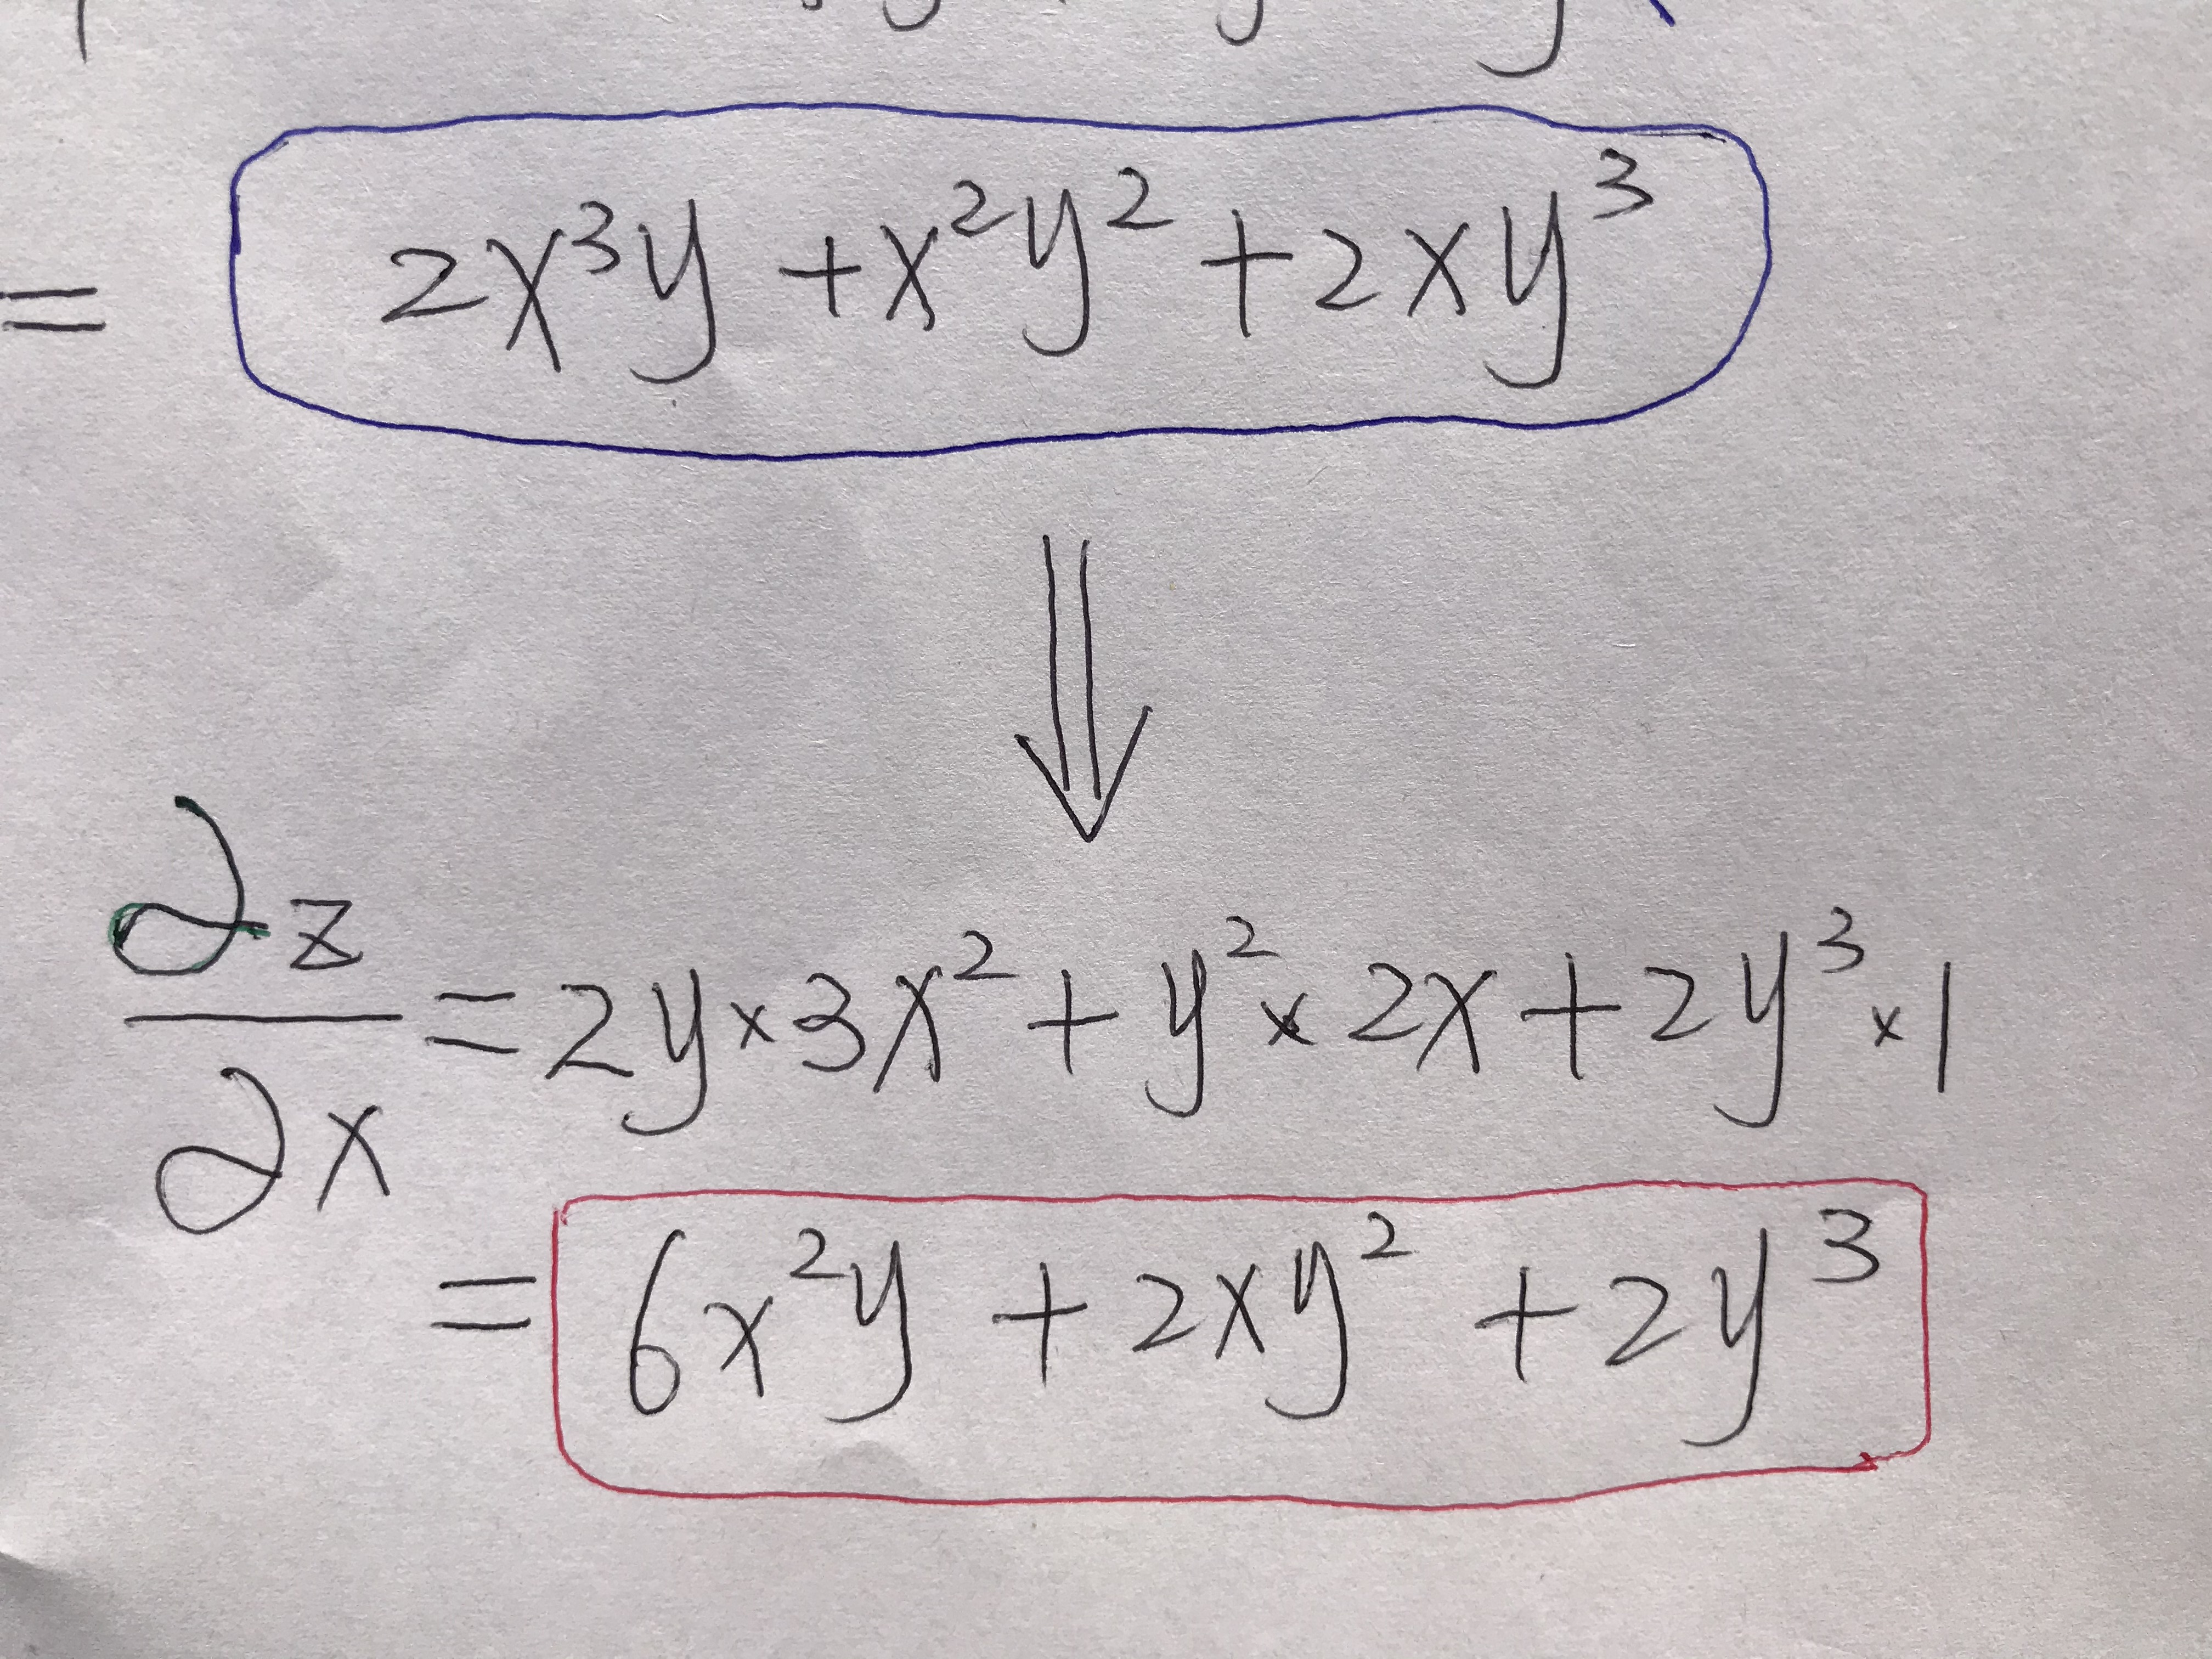 = 2x³y + x²y² + 2xy³
⇓
∂z/∂x = 2y × 3x² + y² × 2x + 2y³ × 1
= 6x²y + 2xy² + 2y³